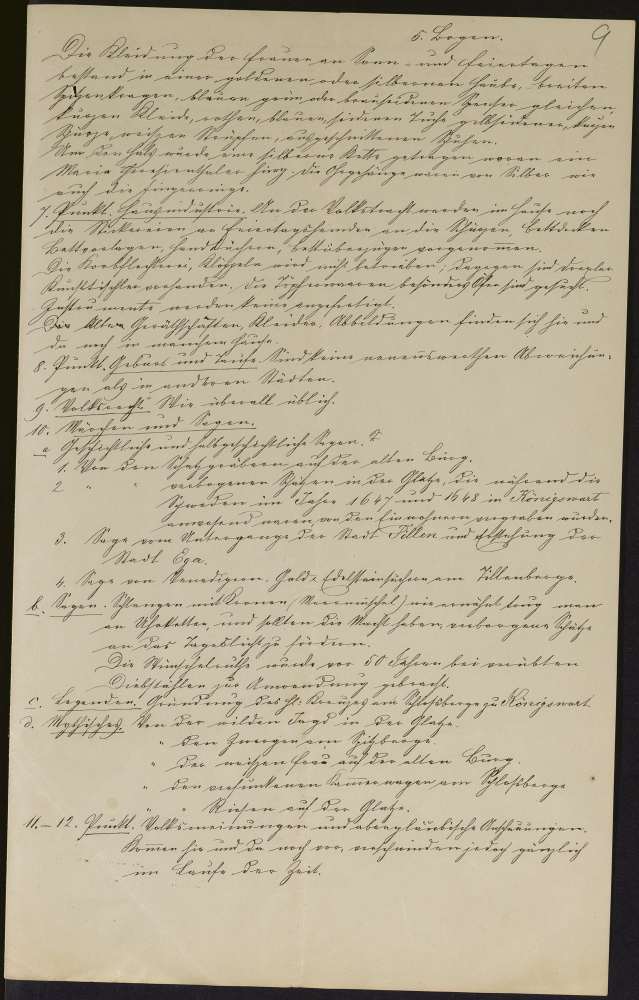 5. Bogen. 9
Die Kleidung der Frauen an Sonn- und Feiertagen
bestand in einer goldenen oder silbernen Haube, breiten
Spitzenkragen, blauen grün oder braunseidenen Spenser gleichen
kurzen Kleide, rothen, blauen, seidenen Tuche gelbseidener, kurzen
Schurze, weißen Strümpfen, ausgeschnittenen Schuhen.
Um den Hals wurde eine silberne Kette getragen woran ein
Maria Theresienthaler hing, die Ohrgehänge waren von Silber wie
auch die Fingerringe.
7. Punkt. Hausindustrie. An der Volkstracht werden im Hause noch
die Stickereien an Feiertagshemden an die Schürzen, Bettdecken
Bettvorlagen, Handtüchern, Bettüberzügen vorgenommen.
Die Korbflechterei, Klöppeln wird nicht betrieben; dagegen sind
Kunsttischler vorhanden. Die Töpferwaaren besonders Öfen sind gesucht.
Instrumente werden keine angefertigt.
Alten Geräthschaften, Kleider, Abbildungen finden sich hie und
da noch in manchem Hause.
8. Punkt. Geburt und Taufe. Sind keine nennenswerthen Abweichun-
gen als in anderen Städten.
9. Volksrecht. Wie überall üblich.
10. Märchen und Sagen.
a Geschichtliche und halbgeschichtliche Sagen.
1. Von den Schatzgräbern auf der alten Burg.
2 " " verborgenen Schätzen in der Glatze, die während die
Schweden im Jahre 1647 und 1648 in Königswart
anwesend waren, von den Einwohnern vergraben wurden.
3. Sage vom Untergange der Stadt Tillen und Entstehung der
Stadt Eger.
4. Sage von Venedigern. Gold & Edelsteinsuchern am Tillenberge.
b. Sagen. Schlangen mit Kronen (Meermuschel) wie erwähnt trug man
an Uhrketten, und sollten die Macht haben, verborgene Schätze
an das Tageslicht zu fördern.
Die Wünschelruthe wurde vor 50 Jahren bei verübten
Diebstählen zur Anwendung gebracht.
c. Legenden. Gründung des hl: Kreuzes am Schloßberge zu Königswart.
d. Mythisches. Von der wilden Jagd in der Glatze.
" den Zwergen am Spitzberge.
" der weißen Frau auf der alten Burg.
" den versunkenen Kammerwagen am Schloßberge
" " Riesen auf der Glatze.
11.–12. Punkt. Volksmeinungen und abergläubische Anschauungen.
Komen hie und da noch vor, verschwinden jedoch gänzlich
im Laufe der Zeit.